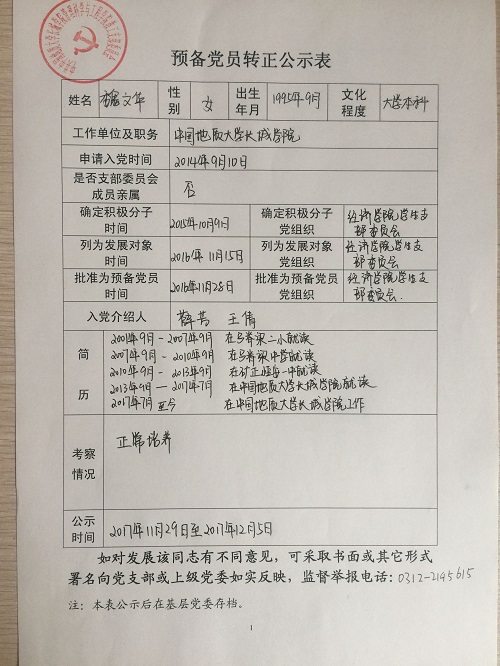 预备党员转正公示表
姓名 文华 性别 女 出生年月 1995年9月 文化程度 大学本科
工作单位及职务 中国地质大学长城学院
申请入党时间 2014年9月10日
是否支部委员会成员亲属 否
确定积极分子时间 2015年10月9日 确定积极分子党组织 经济学院学生支部委员会
列为发展对象时间 2016年11月15日 列为发展对象党组织 经济学院学生支部委员会
批准为预备党员时间 2016年11月28日 批准为预备党员党组织 经济学院学生支部委员会
入党介绍人 薛芳 王倩
简历
2001年9月-2007年9月 在马脊梁二小就读
2007年9月-2010年9月 在马脊梁中学就读
2010年9月-2013年9月 在矿一中就读
2013年9月—2017年7月 在中国地质大学长城学院就读
2017年7月至今 在中国地质大学长城学院工作
考察情况 正常培养
公示时间 2017年11月29日至2017年12月5日
如对发展该同志有不同意见，可采取书面或其它形式
署名向党支部或上级党委如实反映，监督举报电话：0312-2145615
注：本表公示后在基层党委存档。
1